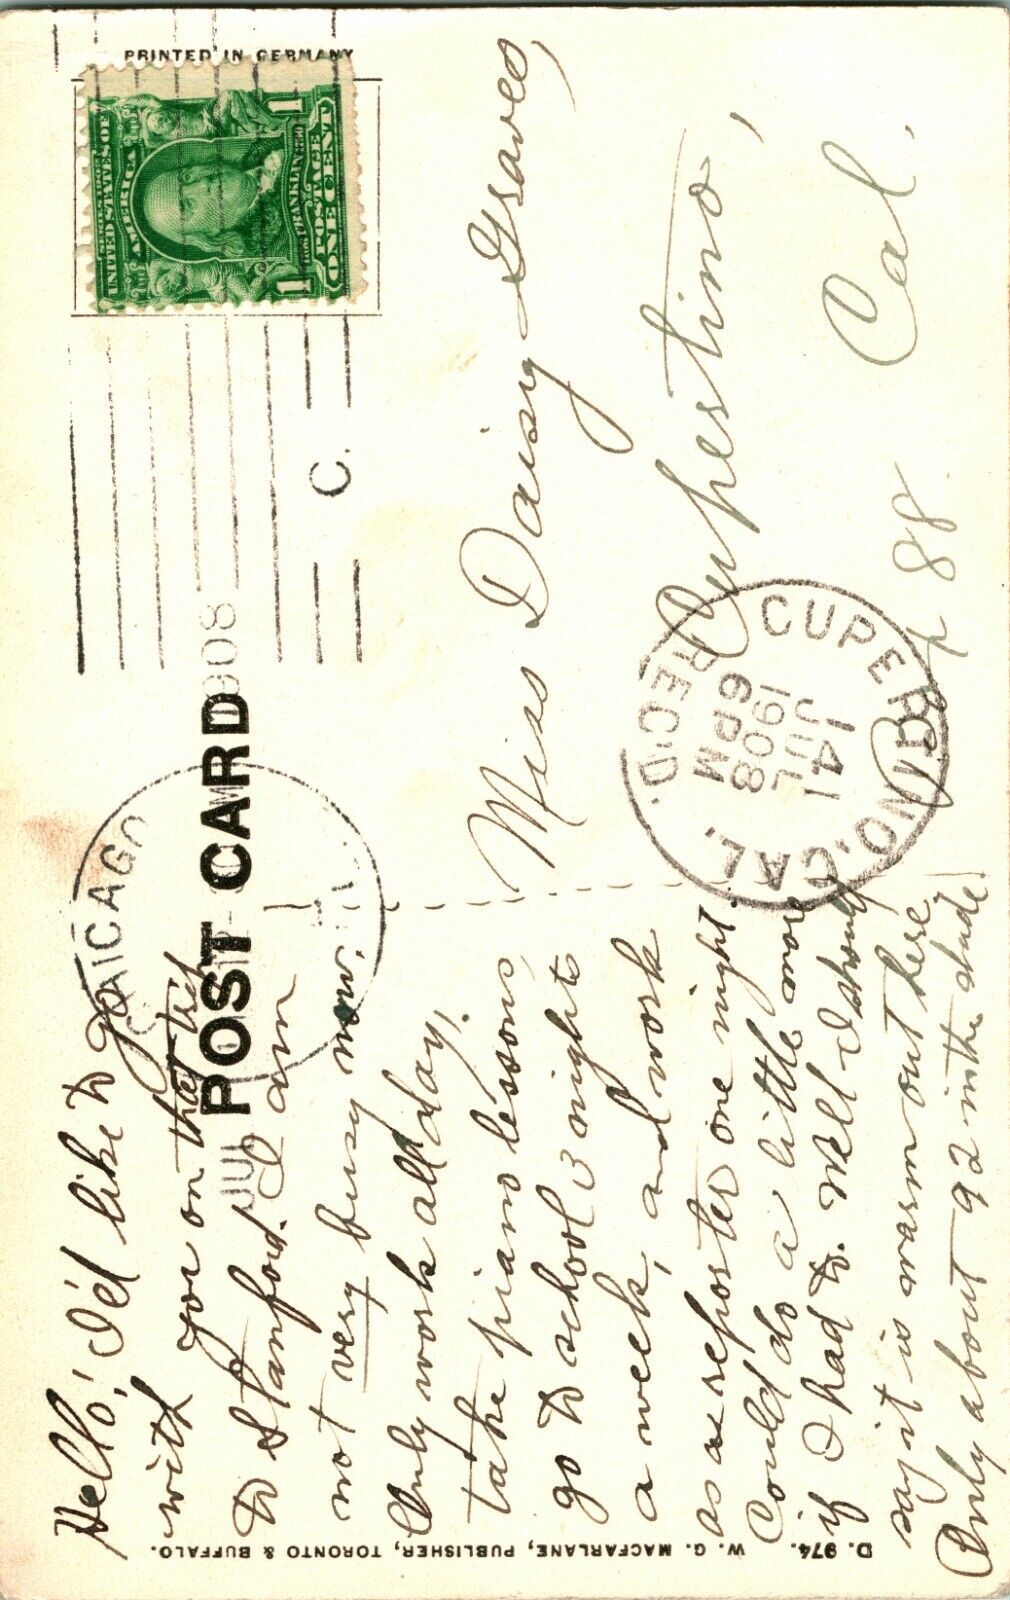 PRINTED IN GERMANY
SERIES 1902
UNITED STATES OF
AMERICA
FRANKLIN
POSTAGE
ONE CENT
1 1
C.
CHICAGO
JUL
1908
POST CARD
Hello! I'd like to go
with you on that trip
to Stanford. I am
not very busy now.
Only work all day,
take piano lessons,
go to school 3 nights
a week, and work
as a reporter one night.
Could do a little more
if I had to. Well I should
say it is warm out here
Only about 92 in the shade!
Miss Daisy Graves,
Cupertino,
Cal.
88
CUPERTINO, CAL.
141
JUL
1908
6 PM
REC'D.
D. 974. W. G. MACFARLANE, PUBLISHER, TORONTO & BUFFALO.